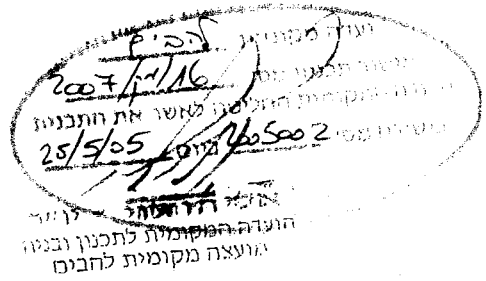 ועדה מקומית להבים
אישור תכנית מס' 16/מק/2007
הועדה המקומית החליטה לאשר את התכנית
בישיבה מס' 2005002 ביום 25/5/05
הועדה המקומית לתכנון ובניה
מועצה מקומית להבים